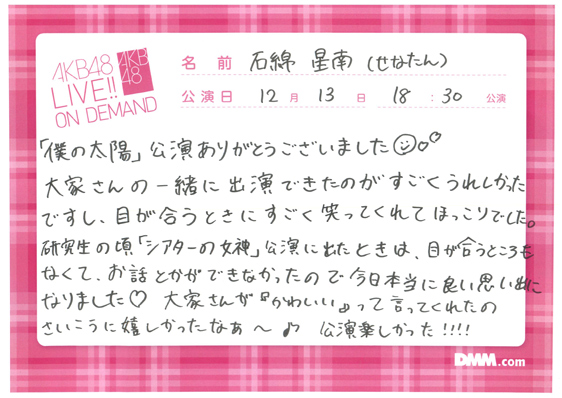 AKB48
LIVE!!
ON DEMAND
AKB
48
名 前 石綿 星南(せなたん)
公演日 12 月 13 日 18 : 30 公演
「僕の太陽」公演ありがとうございました☺♡♡
大家さんの一緒に出演できたのがすごくうれしかった
ですし、目が合うときにすごく笑ってくれてほっこりでした。
研究生の頃「シアターの女神」公演に出たときは、目が合うところも
なくて、お話とかができなかったので今日本当に良い思い出に
なりました♡ 大家さんが『かわいい』って言ってくれたの
さいこうに嬉しかったなぁ〜♪ 公演楽しかった!!!!
DMM.com